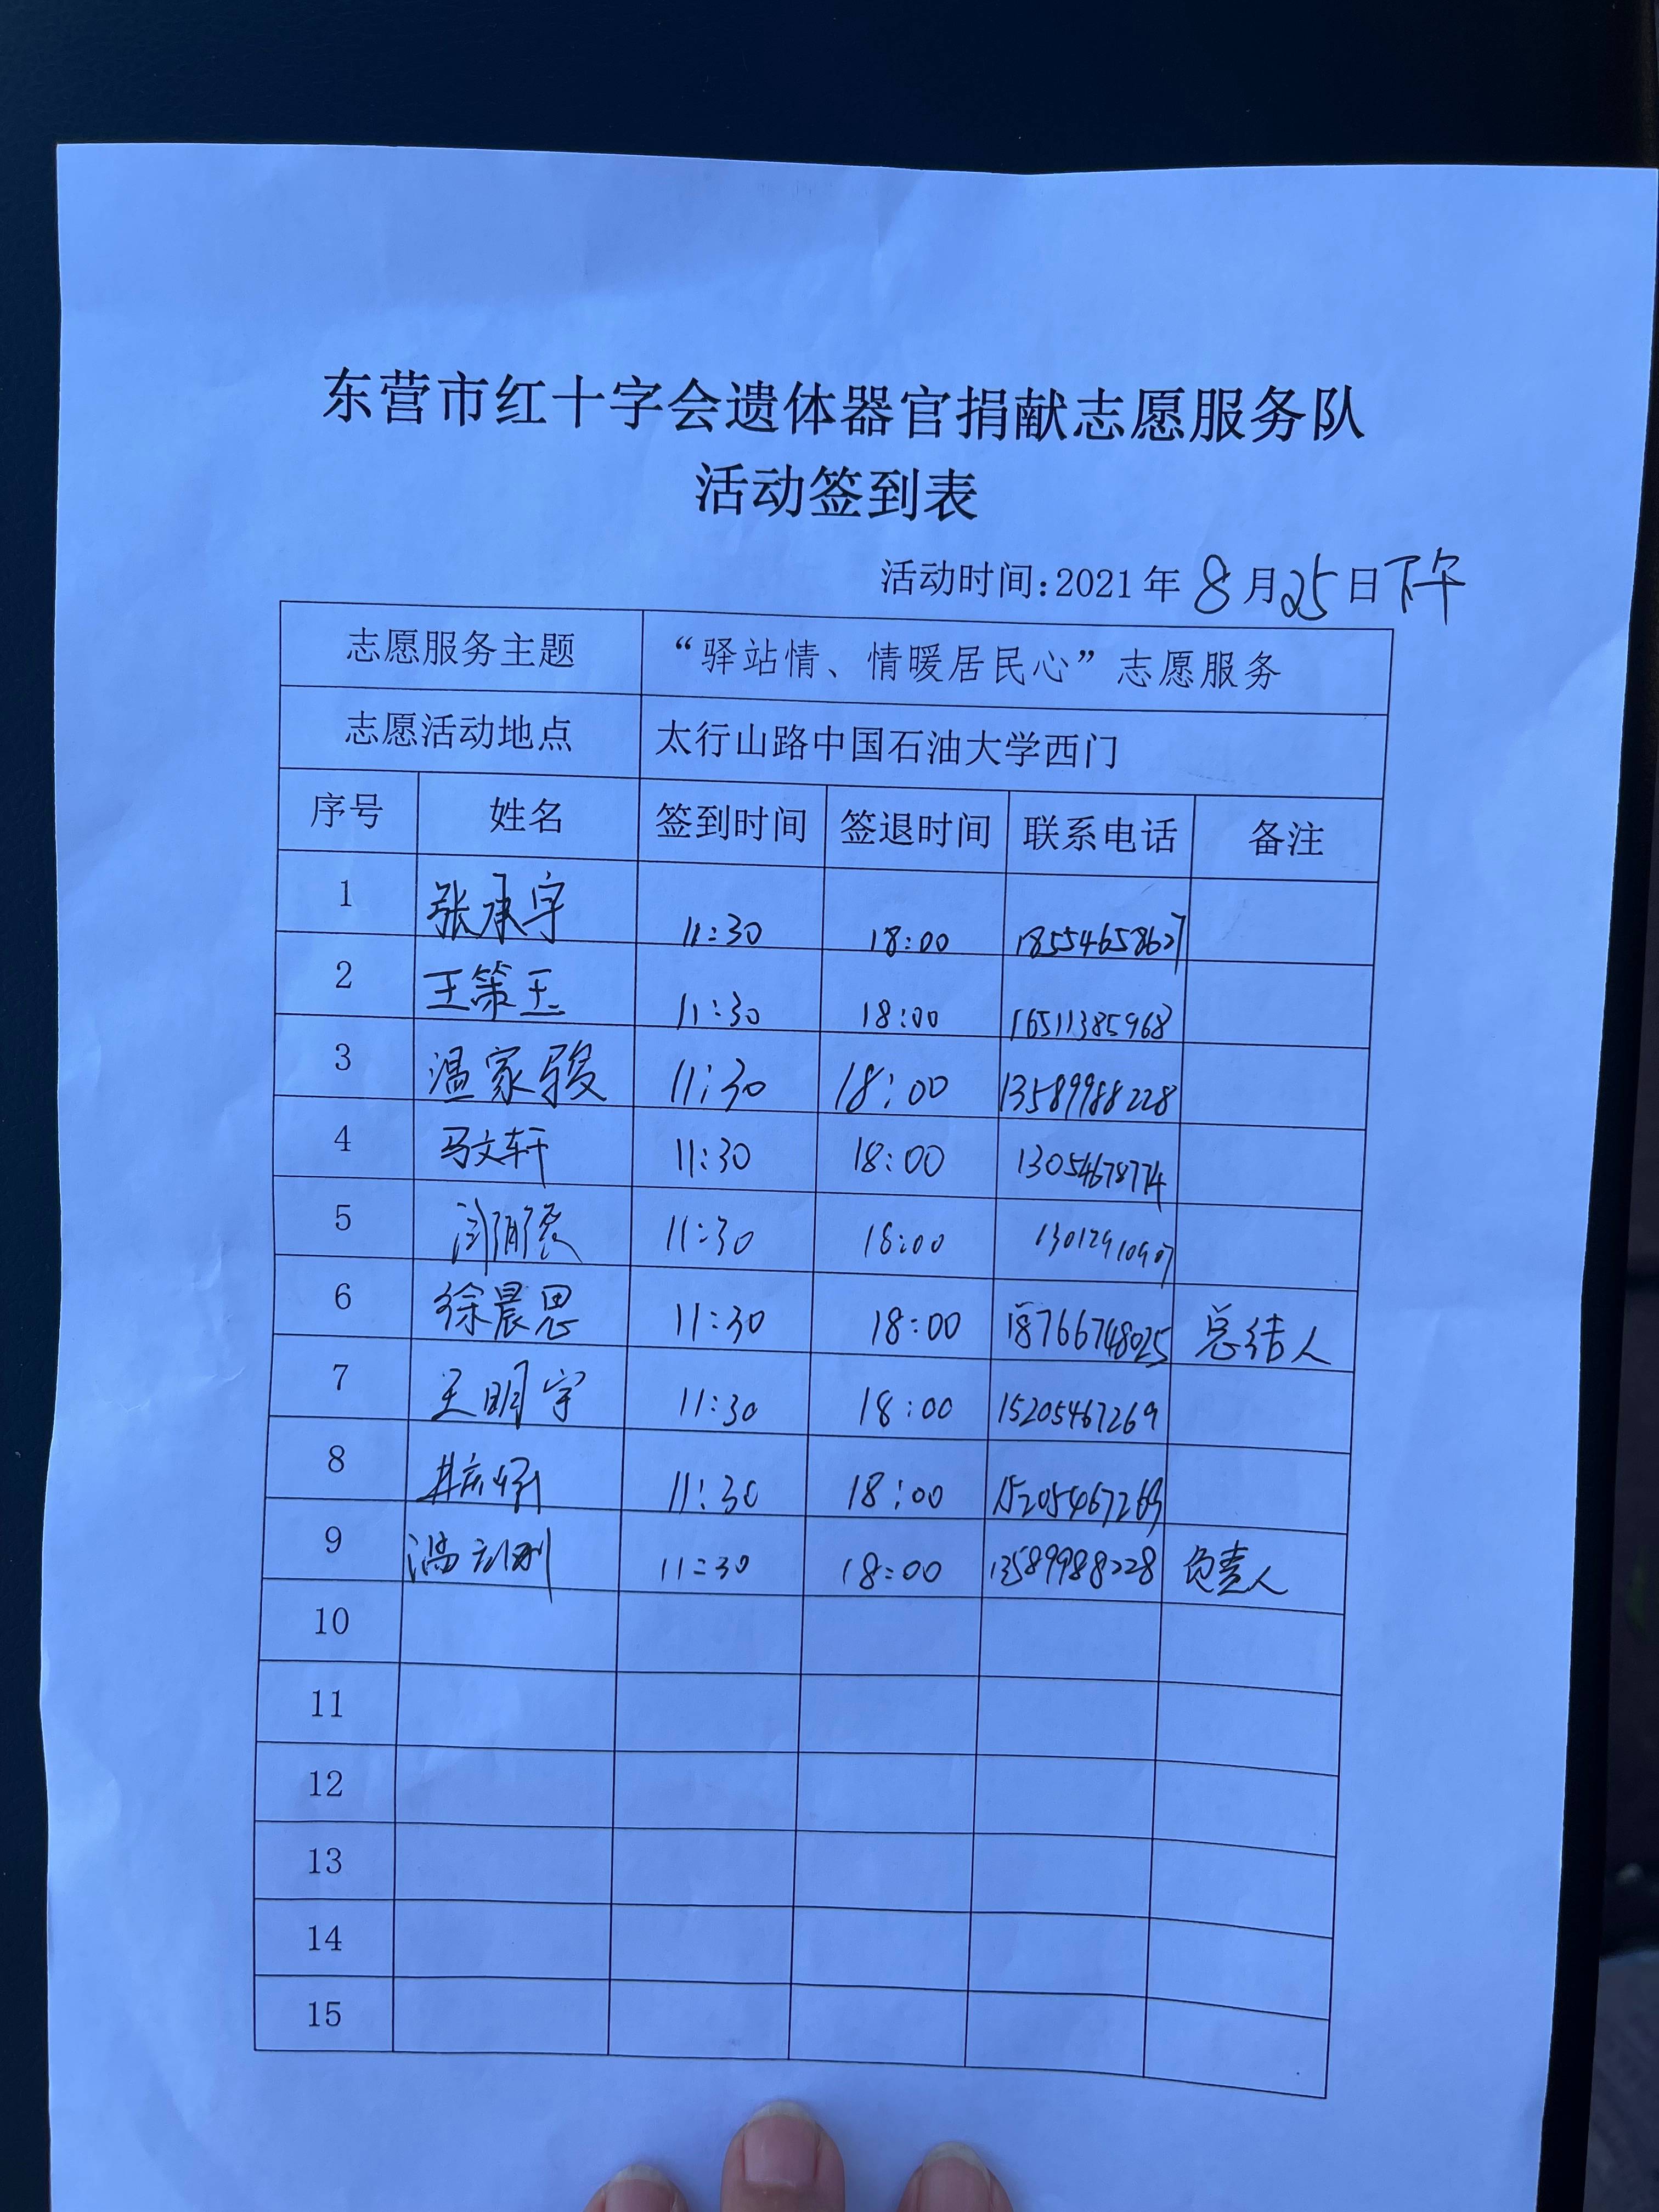 东营市红十字会遗体器官捐献志愿服务队
活动签到表
活动时间:2021年8月25日下午
志愿服务主题 “驿站情、情暖居民心”志愿服务
志愿活动地点 太行山路中国石油大学西门
序号 姓名 签到时间 签退时间 联系电话 备注
1 张承宇 11:30 18:00 18554658627
2 王策玉 11:30 18:00 16511385968
3 温家骏 11:30 18:00 13589988228
4 马文轩 11:30 18:00 13054678774
5 11:30 18:00 13012910907
6 徐晨思 11:30 18:00 18766748025 总结人
7 王明宇 11:30 18:00 15205467269
8 11:30 18:00 15205467269
9 11:30 18:00 13589988228 负责人
10
11
12
13
14
15